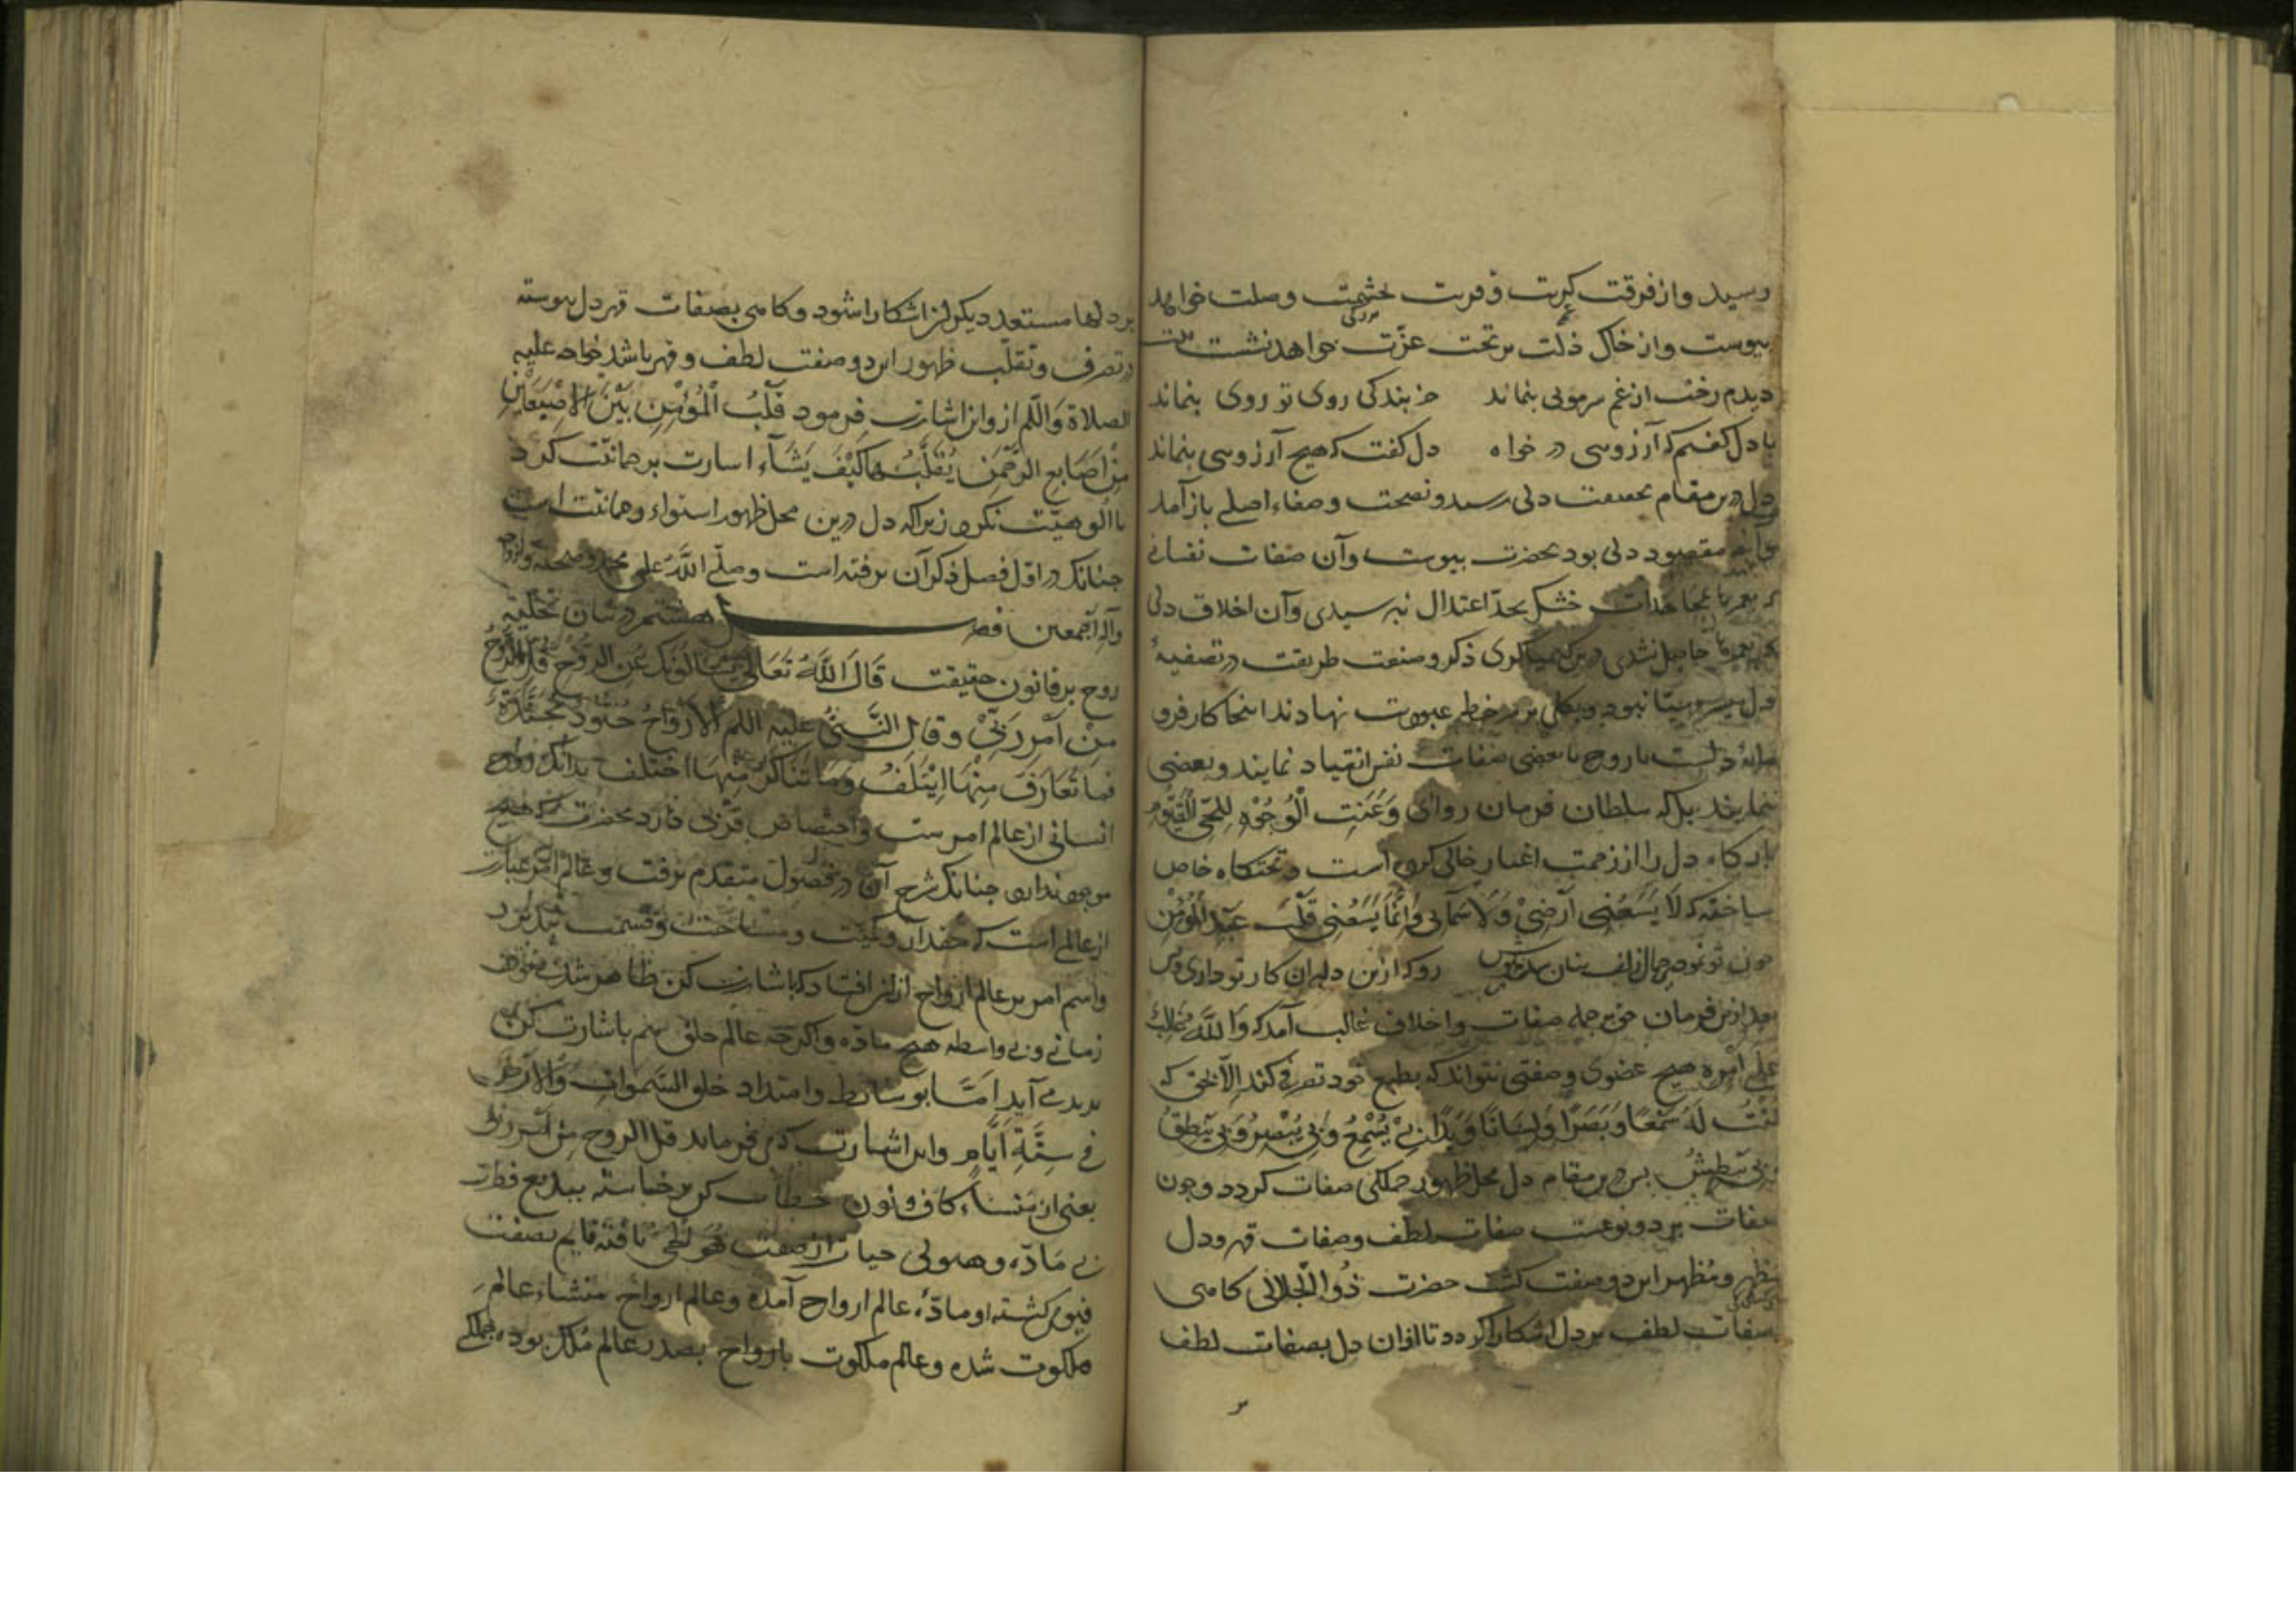 رسید و از فرقت کربت و قربت بحشمت وصلت خواهد
پیوست و از خاک ذلت بر تخت عزّت خواهد نشست
دیدم رخت از غم سر مویی بنماند جز بندگی روی تو روی بنماند
با دل گفتم که آرزویی در خواه دل گفت که هیچ آرزویی بنماند
دل درین مقام بحقیقت دلی رسد و بصحت و صفاء اصلی باز آمد
مقصود دلی بود بحضرت پیوست وآن صفات نفسانی
که بعمرها بمجاهدات خشک بحدّ اعتدال نرسیدی وآن اخلاق دلی
که بعمرها حاصل نشدی درین کیمیاگری ذکر و صنعت طریقت در تصفیهٔ
دل میسر و مهیّا نبود و بکلی سر بر خط عبودیت نهادند اینجا کار فرو
دلست یا روح تا بعضی صفات نفس انقیاد نمایند و بعضی
ننمایند بلکه سلطان فرمان روای وَعَنَتِ الْوُجُوهُ لِلْحَیِّ الْقَیُّومِ
بارگاه دل را از زحمت اغیار خالی کرده است و تختگاه خاص
ساخته که لَا یَسَعُنِی اَرْضِیْ وَلَا سَمَائِی وَاِنَّمَا یَسَعُنِی قَلْبُ عَبْدِی الْمُؤْمِنِ
چون تو نمودی جمال روکه ازین دلبران کار تو داری و بس
بعد ازین فرمان حق بر جمله صفات و اخلاق غالب آمد که وَاللّٰهُ غَالِبٌ
عَلٰی اَمْرِهِ هیچ عضوی و صفتی نتواند که بطبع خود تصرفی کند الا بحق که
کُنْتُ لَهُ سَمْعًا وَبَصَرًا وَلِسَانًا وَیَدًا بِیْ یَسْمَعُ وَبِی یُبْصِرُ وَبِی یَنْطِقُ
وَبِی یَبْطِشُ پس درین مقام دل محل ظهور جملگی صفات گردد و چون
صفات بر دو نوعست صفات لطف و صفات قهر و دل
مظهر و مُظهر این دو صفت گشت حضرت ذُوالْجَلَالی گاهی
بصفات لطف بر دل آشکارا گردد تا از آن دل بصفات لطف
بر دلها مستعد دیگر نیز آشکارا شود و گاهی بصفات قهر دل پیوسته
در تصرف و تقلّب ظهور این دو صفت لطف و قهر باشد خواجه علیه
الصلاة والسلم ازو این اشارت فرمود قَلْبُ الْمُؤْمِنِ بَیْنَ الْاِصْبَعَیْنِ
مِنْ اَصَابِعِ الرَّحْمٰنِ یُقَلِّبُهَا کَیْفَ یَشَآءُ اشارت برحمانیّت کرد
با الوهیّت نکرد زیرا که دل درین محل ظهور استواء رحمانیّت است
چنانک در اوّل فصل ذکر آن برفته است وصلّی اللّٰهُ علی محمد وصحبه
وآله اجمعین فصل هشتم در بیان تحلیهٔ
روح بر قانون حقیقت قَالَ اللّٰهُ تَعَالٰی یَسْئَلُونَکَ عَنِ الرُّوحِ قُلِ الرُّوحُ
مِنْ اَمْرِ رَبّیْ وقال النَّبیُّ علیه السلم الْاَرْوَاحُ جُنُودٌ مُجَنَّدَةٌ
فما تَعَارَفَ مِنْهَا اِیْتَلَفَ وَمَا تَنَاکَرَ مِنْهَا اختلف بدانک روح
انسانی از عالم امرست و اختصاص قربی دارد بحضرت که هیچ
موجود ندارد چنانک شرح آن در فصول متقدم برفت و عالم امر عبارت
از عالمی است که مقدار و کمیّت و مساحت و قسمت نپذیرد
واسم امر بر عالم ارواح از آنِ افتاد که باشارت کن ظاهر شد بی توقف
زمانی و بی واسطه هیچ ماده و اگرچه عالم خلق هم باشارت کن
پدید می آید امّا بوسائط و امتداد خلق السَّمواتِ وَالارْض
فی سِتَّةِ اَیَّامٍ و این اشارت که می فرماید قل الروح من اَمْرِ ربّی
یعنی از منشاء کاف و نون خطاب کن برخاسته ببدیع فطرت
بی مادّه و هیولی حیات از صفت هُوَ الْحَیُّ یافته قایم بصفت
قیومی گشته او مادّهٔ عالم ارواح آمده و عالم ارواح منشاء عالم
ملکوت شده و عالم ملکوت بارواح مصدر عالم مُلک بوده جملگی